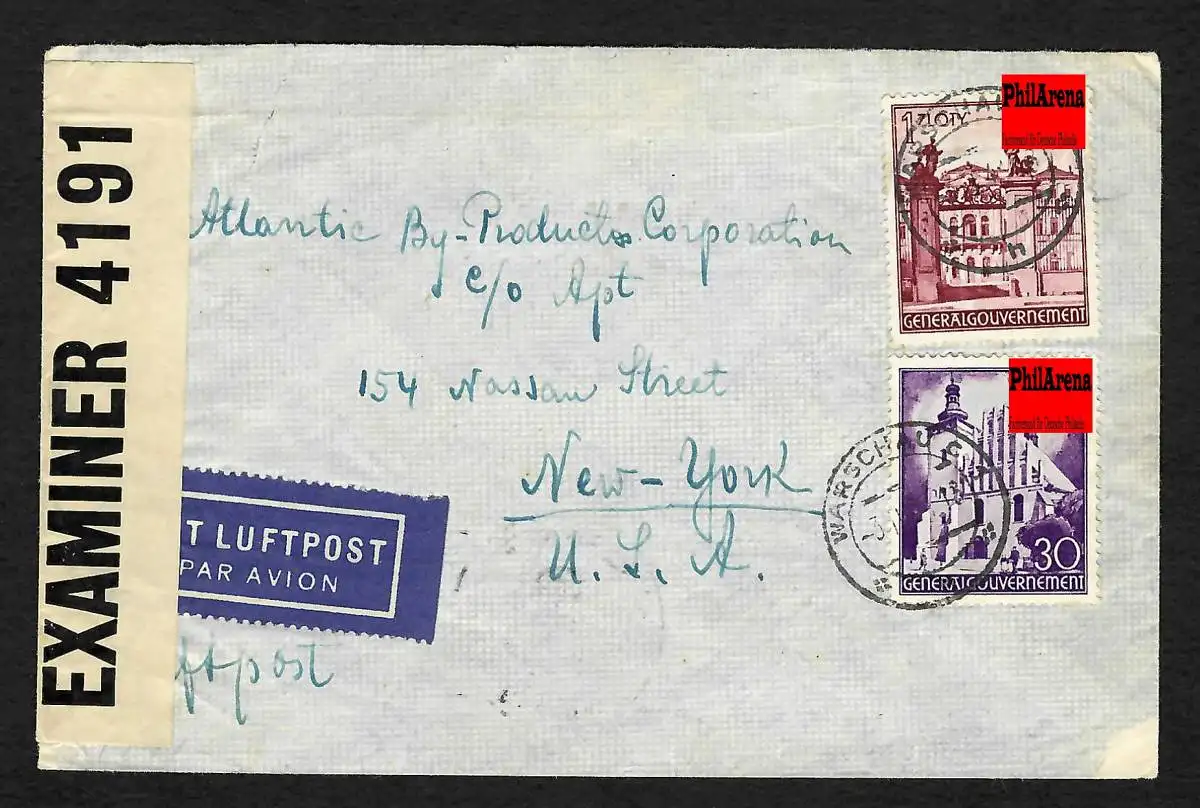 EXAMINER 4191
Atlantic By-Products Corporation
c/o Apt
154 Nassau Street
New-York
U. S. A.
T LUFTPOST
PAR AVION
ftpost
1 ZLOTY
GENERALGOUVERNEMENT
PhilArena
WARSCHAU C
30
GENERALGOUVERNEMENT
PhilArena